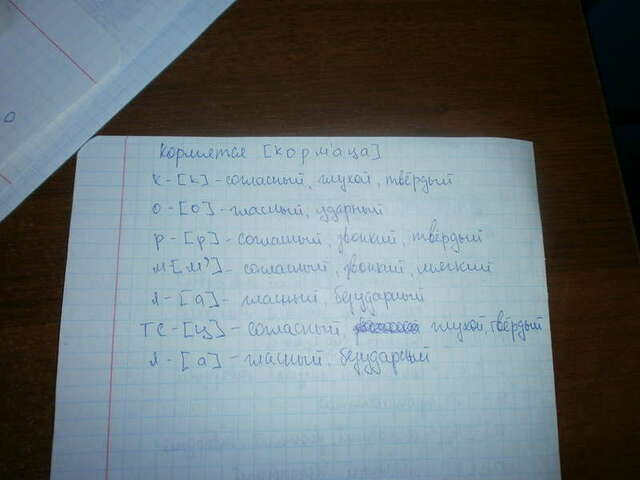 кормятся [кормаца]
к-[к]-согласный, глухой, твёрдый
о-[о]-гласный, ударный
р-[р]-согласный, звонкий, твёрдый
м-[м']-согласный, звонкий, мягкий
я-[а]-гласный, безударный
тс-[ц]-согласный, глухой, твёрдый
я-[а]-гласный, безударный